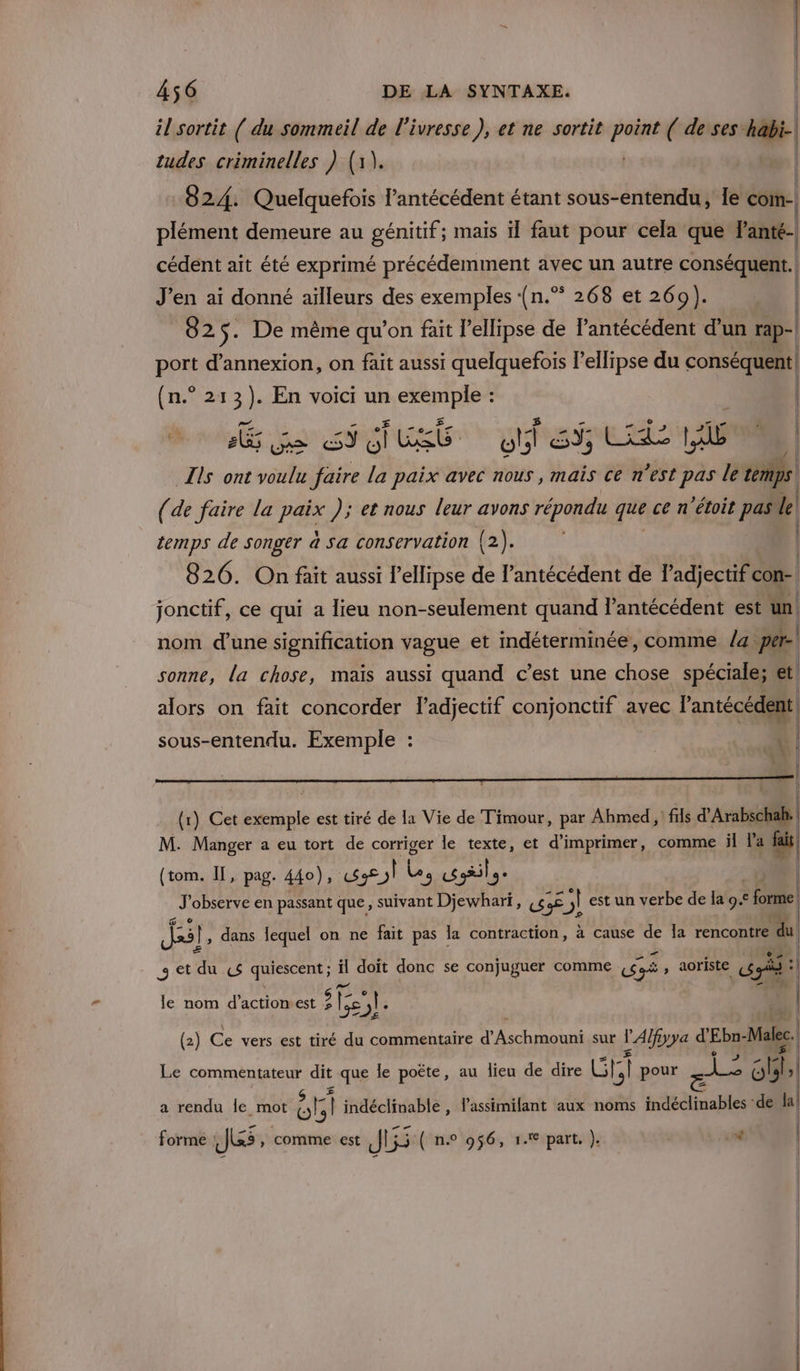 456 DE LA SYNTAXE.
il sortit ( du sommeil de l'ivresse ), et ne sortit point ( de ses habi-
tudes criminelles ) (1).
824. Quelquefois l'antécédent étant sous-entendu, le com-
plément demeure au génitif; mais il faut pour cela que l'anté-
cédent ait été exprimé précédemment avec un autre conséquent.
J'en ai donné ailleurs des exemples (n.os 268 et 269).
825. De même qu'on fait l'ellipse de l'antécédent d'un rap-
port d'annexion, on fait aussi quelquefois l'ellipse du conséquent
(n.° 213). En voici un exemple :
طَلَبُوا صُلْحَنَا وَلَاتَ أَوَانٍ فَأَجَبْنَا أَنْ لَاتَ حِينَ بَقَاءِ
Ils ont voulu faire la paix avec nous, mais ce n'est pas le temps
(de faire la paix ); et nous leur avons répondu que ce n'étoit pas le
temps de songer à sa conservation (2).
826. On fait aussi l'ellipse de l'antécédent de l'adjectif con-
jonctif, ce qui a lieu non-seulement quand l'antécédent est un
nom d'une signification vague et indéterminée, comme la per-
sonne, la chose, mais aussi quand c'est une chose spéciale; et
alors on fait concorder l'adjectif conjonctif avec l'antécédent
sous-entendu. Exemple :
(1) Cet exemple est tiré de la Vie de Timour, par Ahmed, fils d'Arabschah.
M. Manger a eu tort de corriger le texte, et d'imprimer, comme il l'a fait
(tom. II, pag. 440), وانغوى وما ارعوى.
J'observe en passant que, suivant Djewhari, ارعوى est un verbe de la 9.e forme
افعلّ, dans lequel on ne fait pas la contraction, à cause de la rencontre du
و et du ى quiescent; il doit donc se conjuguer comme غوى, aoriste يغوى :
le nom d'action est ارعواء.
(2) Ce vers est tiré du commentaire d'Aschmouni sur l'Alfiyya d'Ebn-Malec.
Le commentateur dit que le poëte, au lieu de dire أوانا pour أوان صلح,
a rendu le mot أوان indéclinable, l'assimilant aux noms indéclinables de la
forme فعال, comme est نزال ( n.° 956, 1.re part. ).